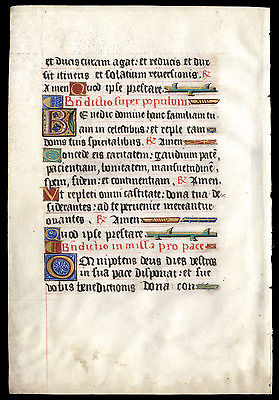 et ducis curam agat: et reducis et dur
sit itineris et solatium reversionis. R
Amen Quod ipse prestare.
Bndictio super populum
Benedic domine hanc familiam tu
am in celestibus: et reple eam
donis tuis spiritalibus. R Amen
Concede eis caritatem: gaudium pacē
pacientiam, bonitatem, mansuetudinē
spem, fidem: et continentiam. R Amen.
Ut repleti omni castitate: dona tua de-
siderantes: ad te pervenire mereantur
ovantes. R Amen
Quod ipse prestare.
Bndictio in missa pro pace
Omnipotens deus dies vestros
in sua pace disponat: et sue
vobis benedictionis dona con